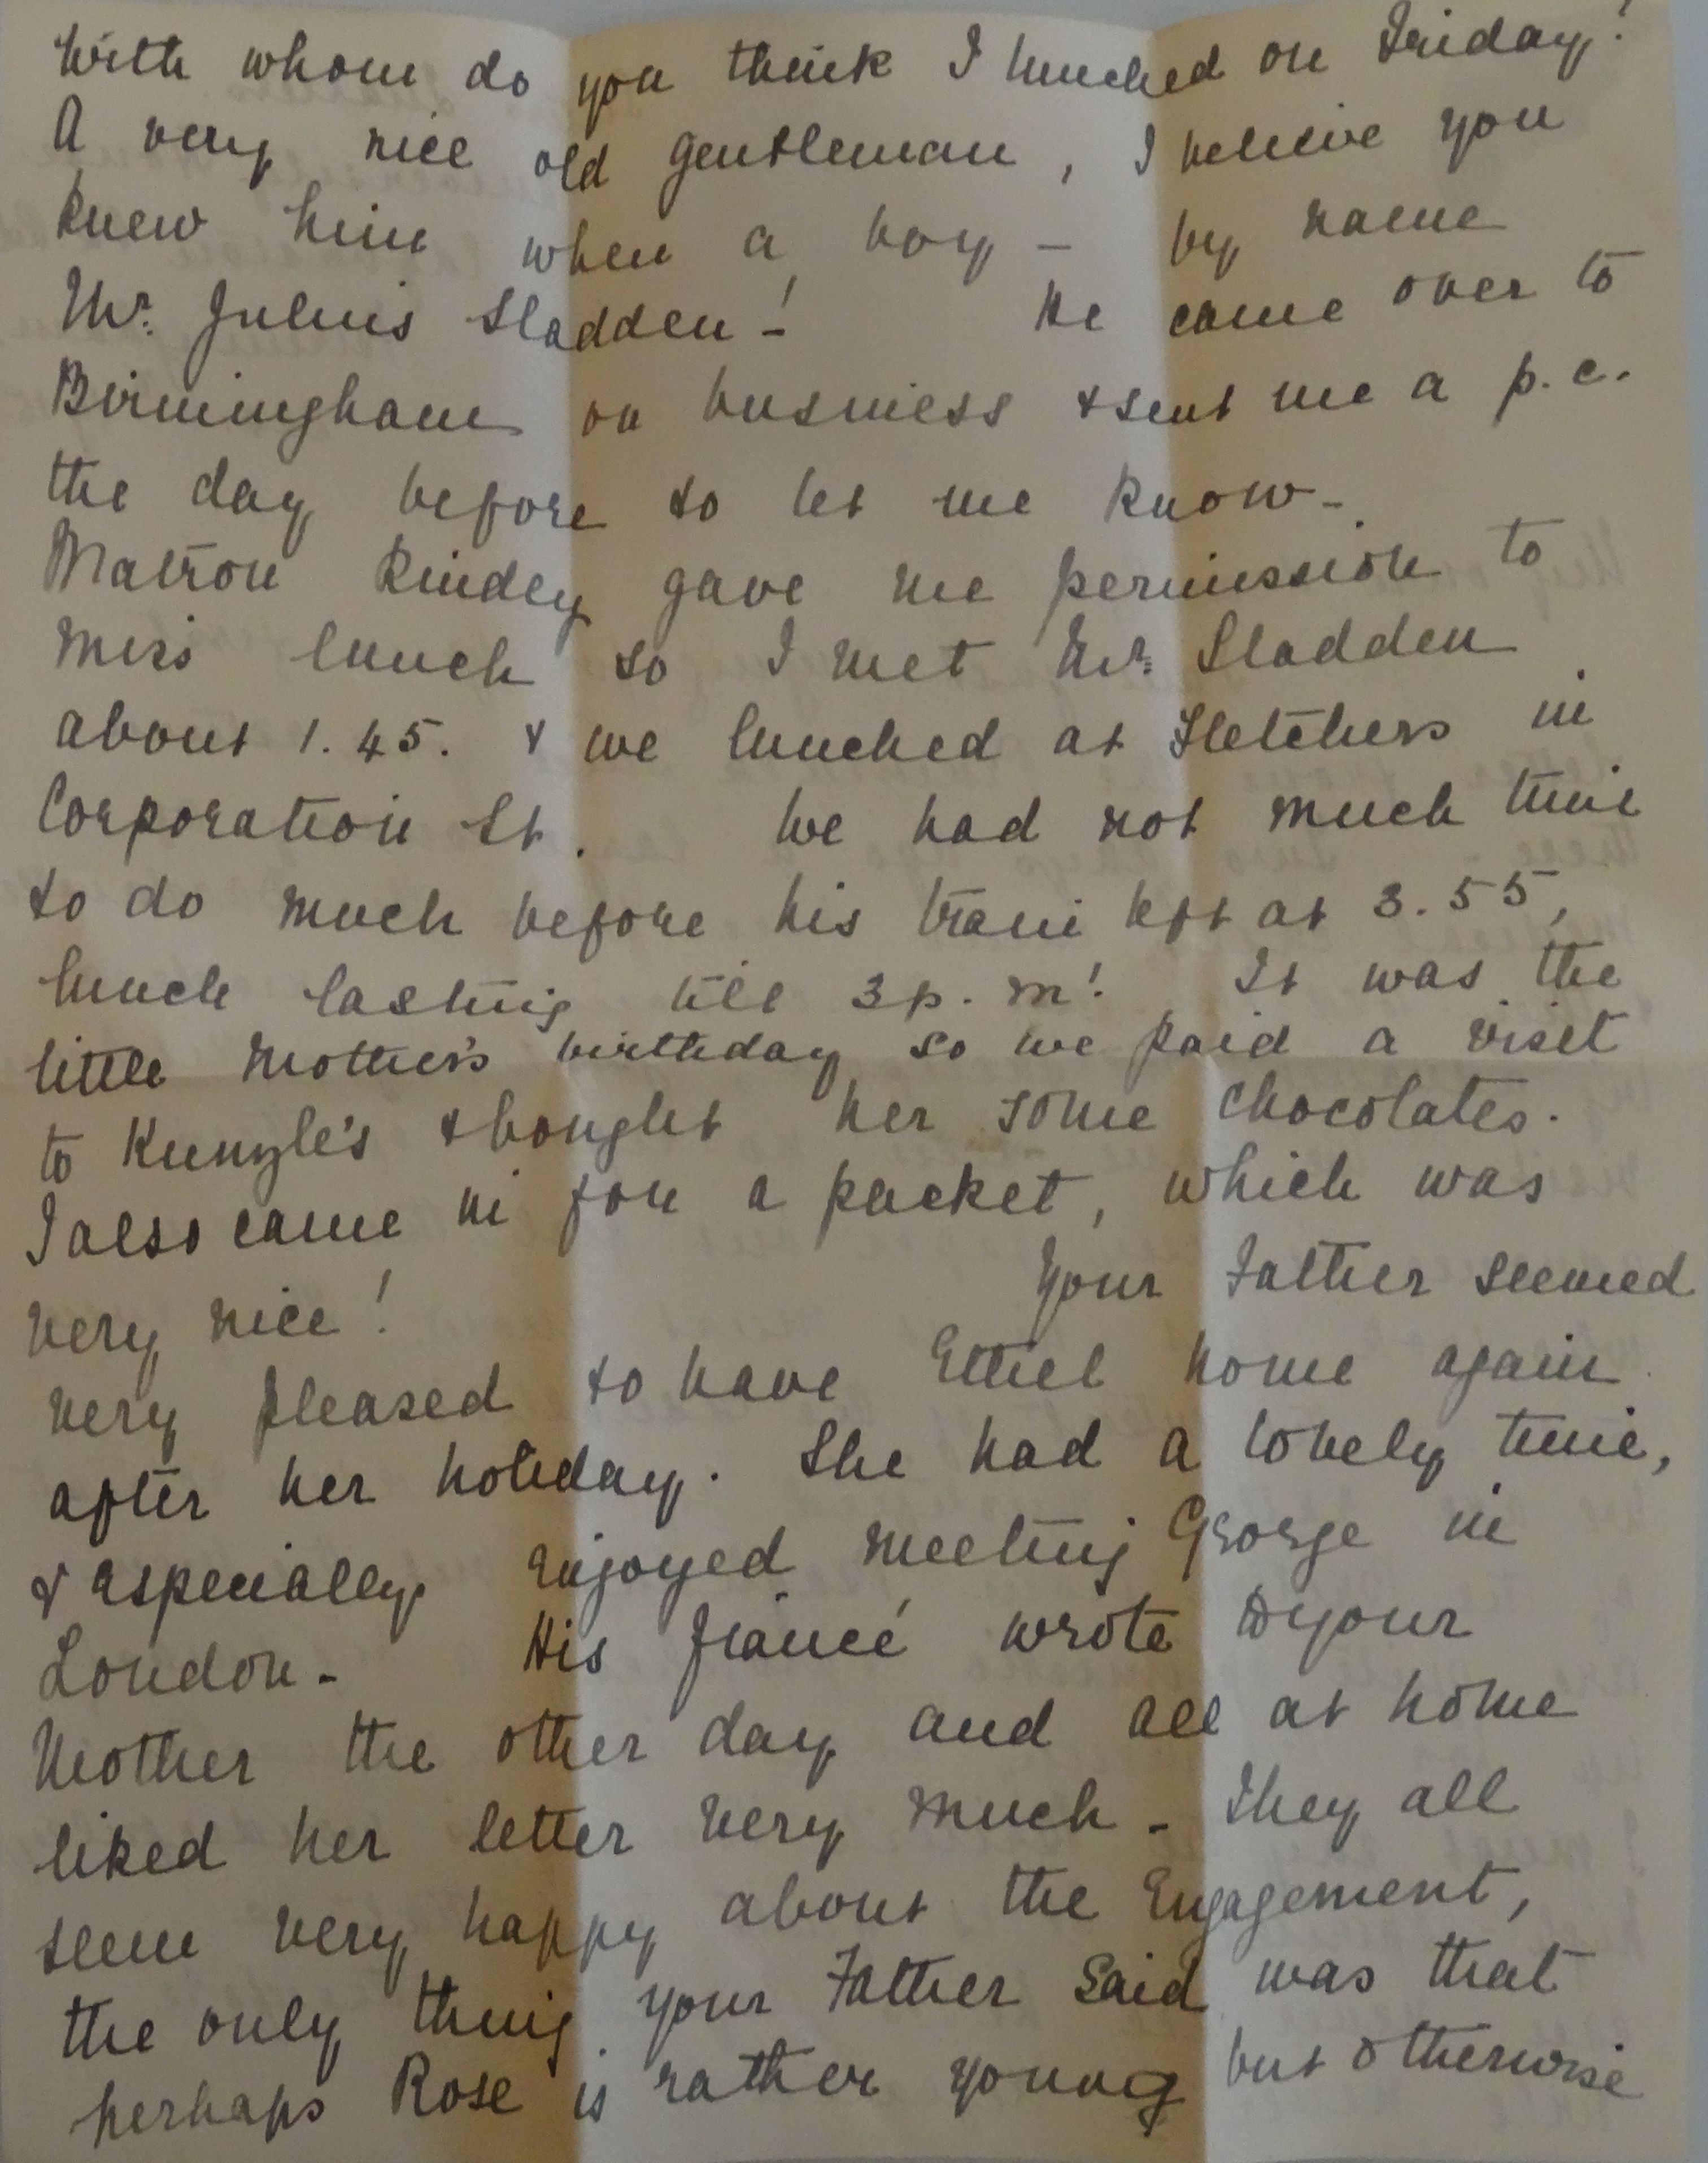 With whom do you think I lunched on Friday?
A very nice old gentleman, I believe you
knew him when a boy – by name
Mr. Julius Sladden! – He came over to
Birmingham on business & sent me a p.c.
the day before to let me know –
Matron kindly gave me permission to
miss lunch so I met Mr. Sladden
about 1.45. & we lunched at Fletchers in
Corporation St. We had not much time
to do much before his train left at 3.55,
lunch lasting till 3 p.m! It was the
little Mother's birthday so we paid a visit
to Kunzle's & bought her some chocolates.
I also came in for a packet, which was
very nice! Your Father seemed
very pleased to have Ethel home again
after her holiday. She had a lovely time,
& especially enjoyed meeting George in
London – His fiancé wrote to your
Mother the other day and all at home
liked her letter very much – They all
seem very happy about the Engagement,
the only thing your Father said was that
perhaps Rose is rather young but otherwise